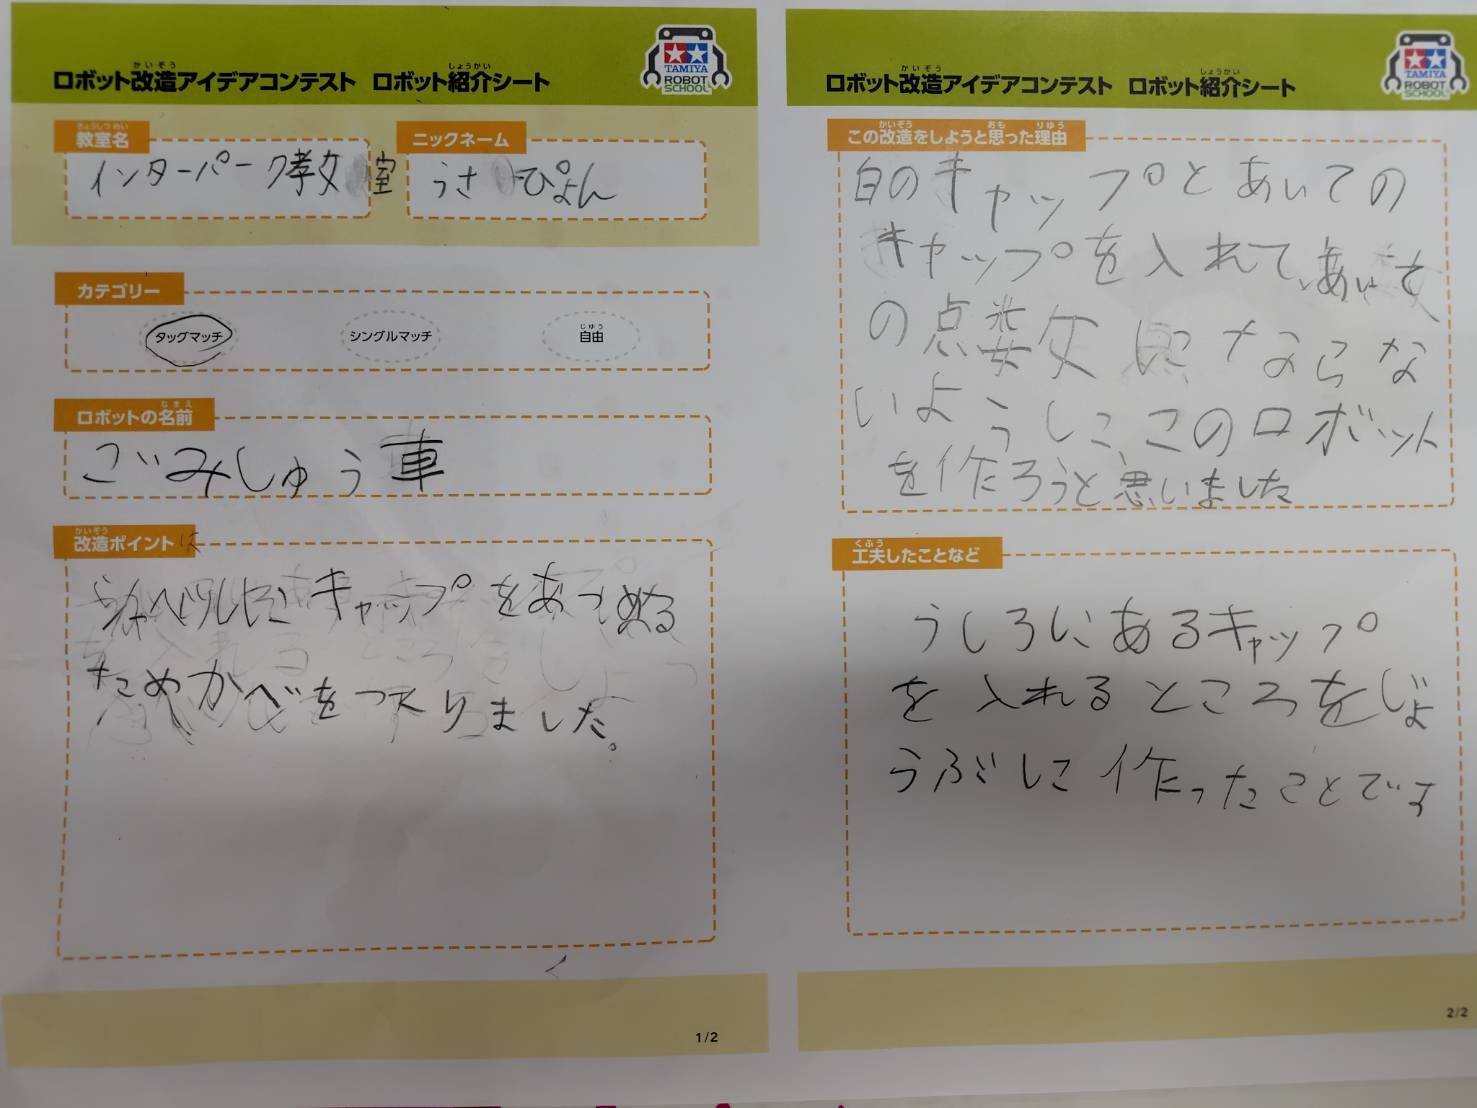 ロボット改造アイデアコンテスト ロボット紹介シート
かいぞう
しょうかい
TAMIYA
ROBOT
SCHOOL
教室名
きょうしつめい
インターパーク教室
ニックネーム
うさぴょん
カテゴリー
タッグマッチ
シングルマッチ
自由
じゆう
ロボットの名前
なまえ
ごみしゅう車
改造ポイント
かいぞう
は
キャップをあつめる
ためかべをつくりました。
1/2
ロボット改造アイデアコンテスト ロボット紹介シート
かいぞう
しょうかい
TAMIYA
ROBOT
SCHOOL
この改造をしようと思った理由
かいぞう
おも
りゆう
白のキャップとあいての
キャップを入れて、あいて
の点数にならな
いようにこのロボット
を作ろうと思いました
工夫したことなど
くふう
うしろにあるキャップ
を入れるところをじょ
うぶに作ったことです
2/2